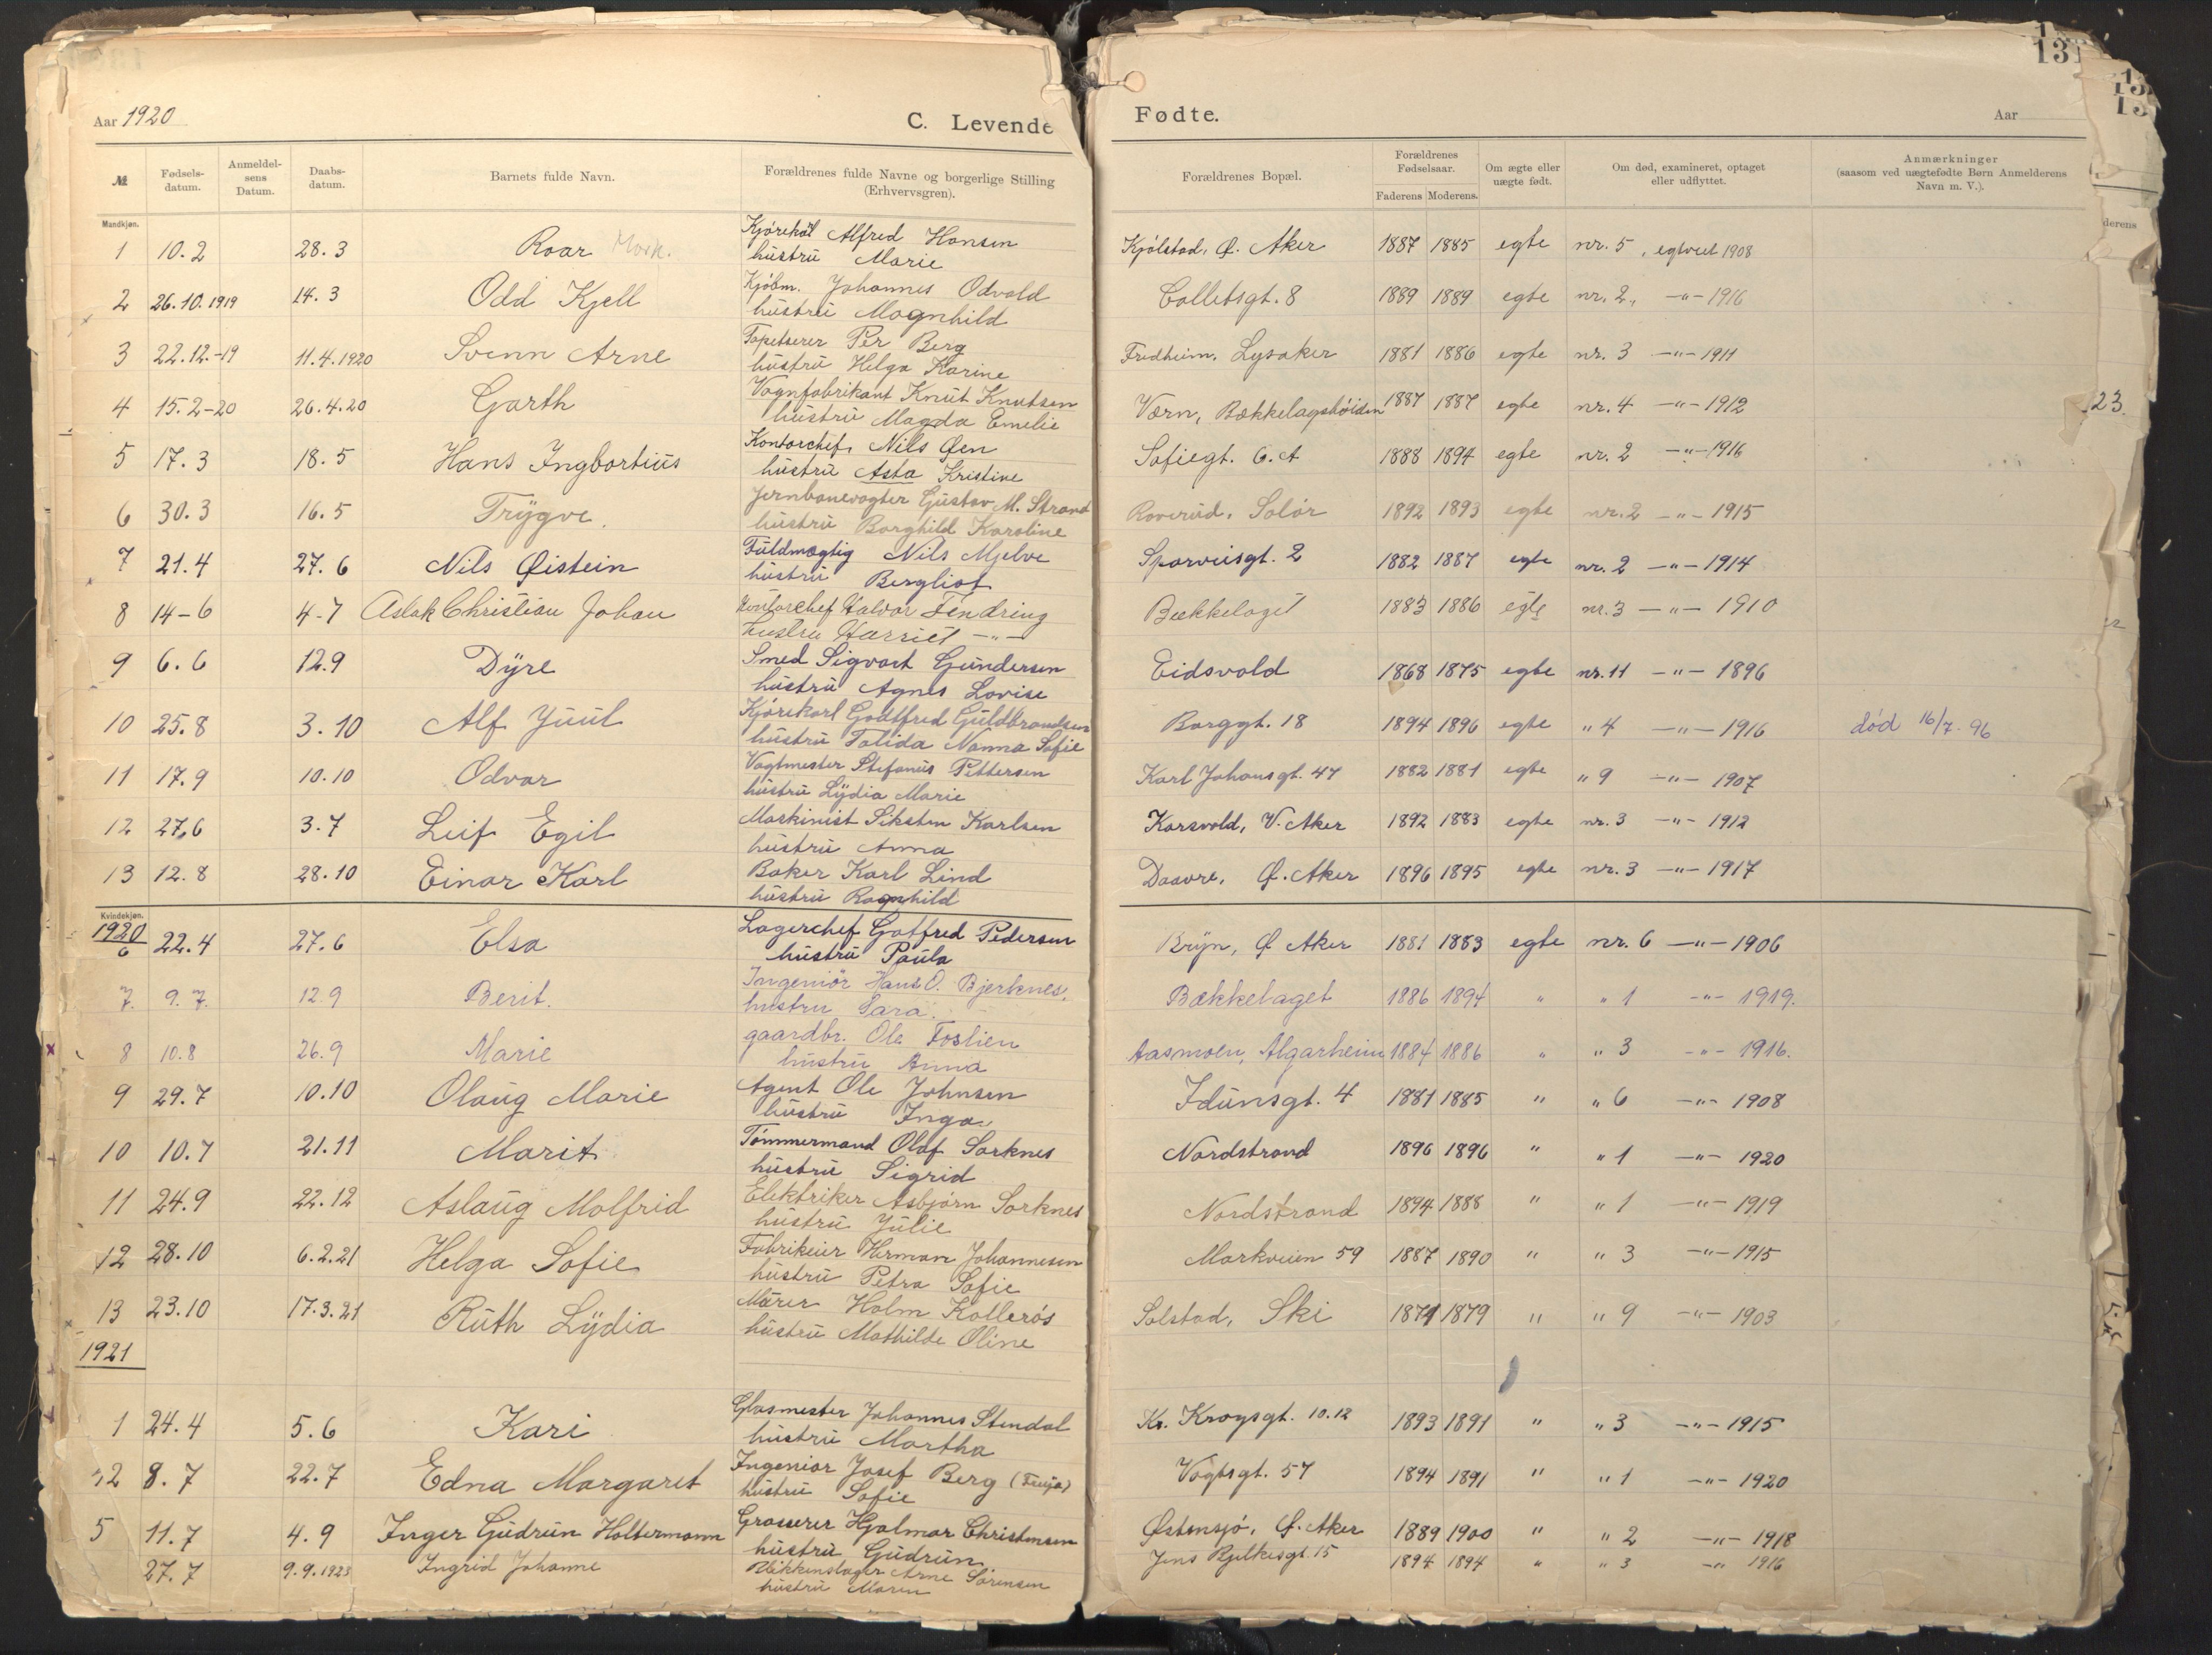 Aar 1920
C. Levende
№
Fødsels-datum.
Anmeldel-sens Datum.
Daabs-datum.
Barnets fulde Navn.
Forældrenes fulde Navne og borgerlige Stilling (Erhvervsgren).
Mandkjøn.
1 10.2 28.3 Roar Alfred Hansen
hustru Marie
2 26.10.1919 14.3 Odd Kjell Kjøbm. Johannes Odvald
hustru Magnhild
3 22.12.-19 11.4.1920 Svenn Arne Tapetserer Per Berg
hustru Helga Karine
4 15.2-20 26.4.20 Garth Vognfabrikant Knut Knutsen
hustru Magda Emelie
5 17.3 18.5 Hans Ingbortius Kontorchef Nils Øen
hustru Asta Kristine
6 30.3 16.5 Trygve. Jernbanevogter Gustav M. Strand
hustru Borghild Karoline
7 21.4 27.6 Nils Øistein Fuldmægtig Nils Mjelve
hustru Bergliot
8 14-6 4-7 Aslak Christian Johan Kontorchef Halvor Fendring
hustru Harriet -"-
9 6.6 12.9 Dyre Smed Sigvart Gundersen
hustru Agnes Lovise
10 25.8 3.10 Alf Juul Kjørekarl Gottfred Guldbrandsen
hustru Tolida Nanna Sofie
11 17.9 10.10 Odvar Vagtmester Stefanus Pettersen
hustru Lydia Marie
12 27.6 3.7 Leif Egil Maskinist Siksten Karlsen
hustru Anna
13 12.8 28.10 Einar Karl Baker Karl Lind
hustru Ragnhild
Kvindekjøn.
1920
6 22.4 27.6 Elsa Lagerchef Gotfred Pedersen
hustru Paula
7. 9.7. 12.9 Berit. Ingeniør Hans O. Bjerknes,
hustru Sara.
8 10.8 26.9 Marie gaardbr. Ole Foslien
hustru Anna
9 29.7 10.10 Olaug Marie Agent Ole Johnsen
hustru Inga
10 10.7 21.11 Marit Tömmermand Olaf Sorknes
hustru Sigrid
11 24.9 22.12 Aslaug Molfrid Elektriker Asbjørn Sorknes
hustru Julie
12 28.10 6.2.21 Helga Sofie Fabrikeier Herman Johannesen
hustru Petra Sofie
13 23.10 17.3.21 Ruth Lydia Murer Holm Kollerøs
hustru Mathilde Oline
1921
1 24.4 5.6 Kari Glasmester Johannes Stendal
hustru Martha
2 8.7 22.7 Edna Margaret Ingeniør Josef Berg (Freyja)
hustru Sofie
5 11.7 4.9 Inger Gudrun Holtermann Grosserer Hjalmar Christensen
hustru Gudrun
27.7 9.9.1923 Ingrid Johanne Blikkenslager Arne Sørensen
hustru Maren
Fødte.
Aar
131
Forældrenes Bopæl.
Forældrenes Fødselsaar.
Faderens Moderens.
Om ægte eller uægte født.
Om død, examineret, optaget eller udflyttet.
Anmærkninger
(saasom ved uægtefødte Børn Anmelderens Navn m. V.).
Kjølstad, Ø. Aker 1887 1885 egte nr. 5, egtviet 1908
Colletsgt. 8 1889 1889 egte nr. 2, -"- 1916
Fredheim, Lysaker 1881 1886 egte nr. 3 -"- 1911
Værn, Bækkelagshøiden 1887 1887 egte nr. 4 -"- 1912
Sofiegt. 6.A 1888 1894 egte nr. 2 -"- 1916
Roverud, Solør 1892 1893 egte nr. 2 -"- 1915
Sporveisgt. 2 1882 1887 egte nr. 2 -"- 1914
Bækkelaget 1883 1886 egte nr. 3 -"- 1910
Eidsvold 1868 1875 egte nr. 11 -"- 1896
Borggt. 18 1894 1896 egte " 4 -"- 1916 død 16/7. 96
Karl Johansgt. 47 1882 1881 egte " 9 -"- 1907
Korsvold, V. Aker 1892 1883 egte nr. 3 -"- 1912
Daavre, Ø. Aker 1896 1895 egte nr. 3 -"- 1917
Bryn, Ø Aker 1881 1883 egte nr. 6 -"- 1906
Bækkelaget 1886 1894 " " 1 -"- 1919.
Aasmoen, Algarheim 1884 1886 " " 3 -"- 1916.
Idunsgt. 4 1881 1885 " " 6 -"- 1908
Nordstrand 1896 1896 " " 1 -"- 1920
Nordstrand 1894 1888 " " 1 -"- 1919
Markveien 59 1887 1890 " " 3 -"- 1915
Solstad, Ski 1871 1879 " " 9 -"- 1903
Kr. Krogsgt. 10.12 1893 1891 " " 3 -"- 1915
Vogtsgt. 57 1894 1891 " " 1 -"- 1920
Østensjø, Ø. Aker 1889 1900 " " 2 -"- 1918
Jens Bjelkesgt. 15 1894 1894 " " 3 -"- 1916
derens
23.